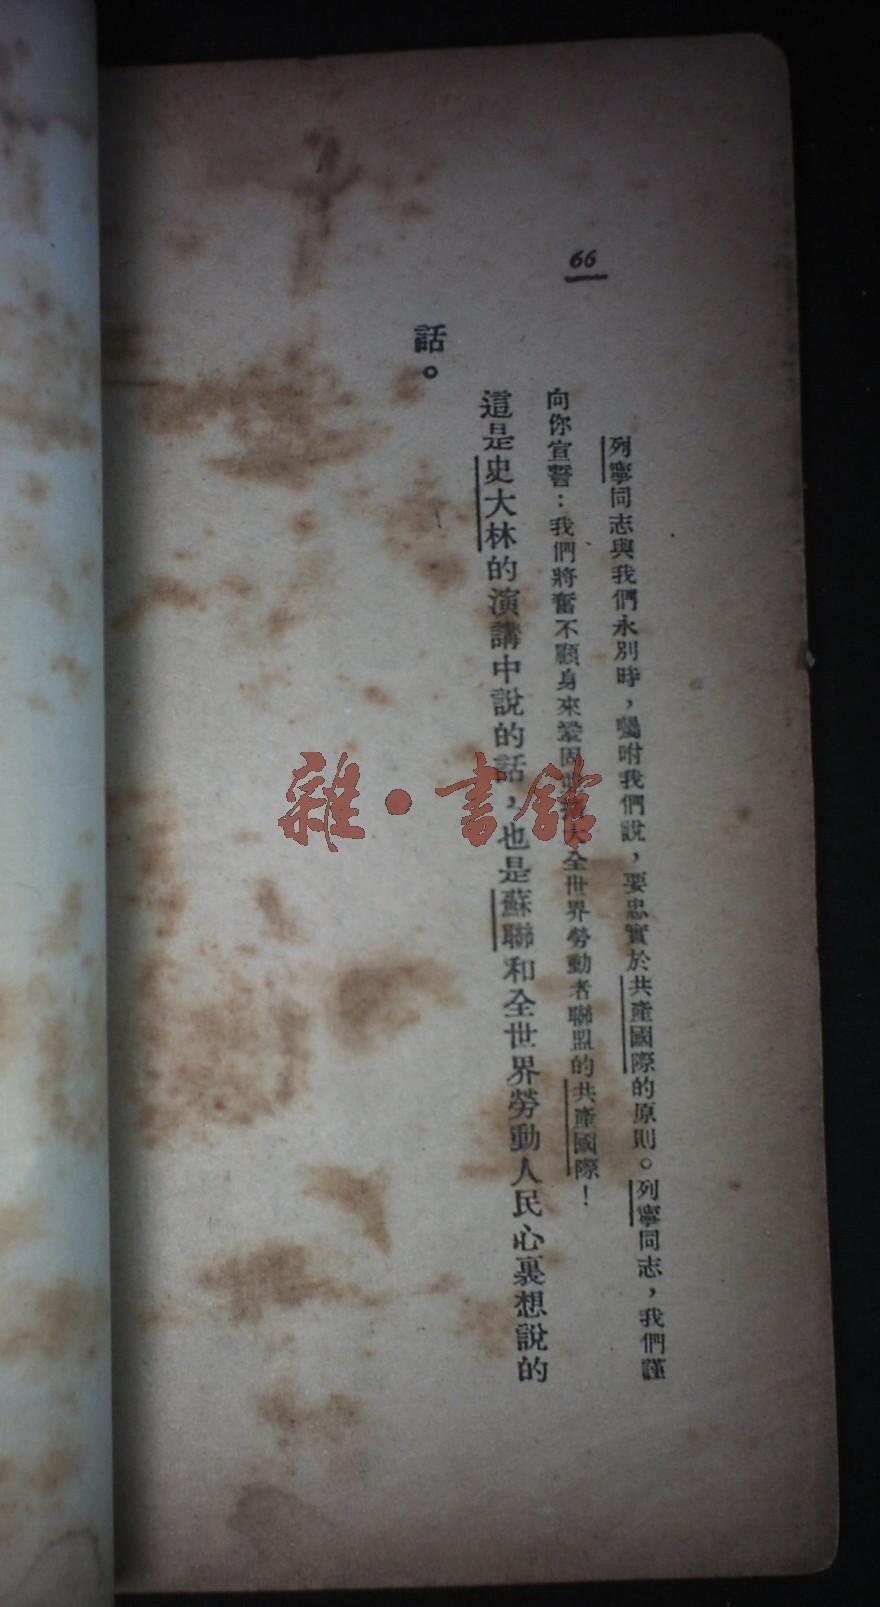 66
列寧同志與我們永別時，囑咐我們說，要忠實於共產國際的原則。列寧同志，我們謹
向你宣誓：我們將奮不顧身來鞏固和擴大全世界勞動者聯盟的共產國際！
這是史大林的演講中說的話，也是蘇聯和全世界勞動人民心裏想說的
話。
雜·書館